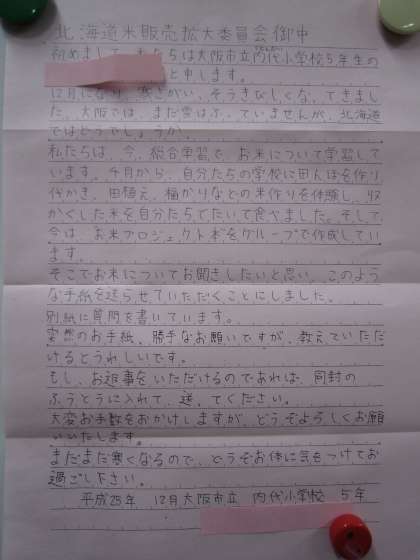 北海道米販売拡大委員会御中
初めまして。私たちは大阪市立内代小学校5年生の
と申します。
12月になり、寒さがいっそうきびしくなってきまし
た。大阪では、まだ雪はふっていませんが、北海道
ではどうでしょうか。
私たちは、今、総合学習で、お米について学習して
います。4月から、自分たちの学校に田んぼを作り
代かき、田植え、稲かりなどの米作りを体験し、収
かくした米を自分たちでたいて食べました。そして
今は、お米プロジェクト本をグループで作成してい
ます。
そこでお米についてお聞きしたいと思い、このよう
な手紙を送らせていただくことにしました。
別紙に質問を書いています。
突然のお手紙、勝手なお願いですが、教えていただ
けるとうれしいです。
もし、お返事をいただけるのであれば、同封の
ふうとうに入れて、送ってください。
大変お手数をおかけしますが、どうぞよろしくお願
いいたします。
まだまだ寒くなるので、どうぞお体に気をつけてお
過ごし下さい。
平成25年 12月大阪市立 内代小学校 5年